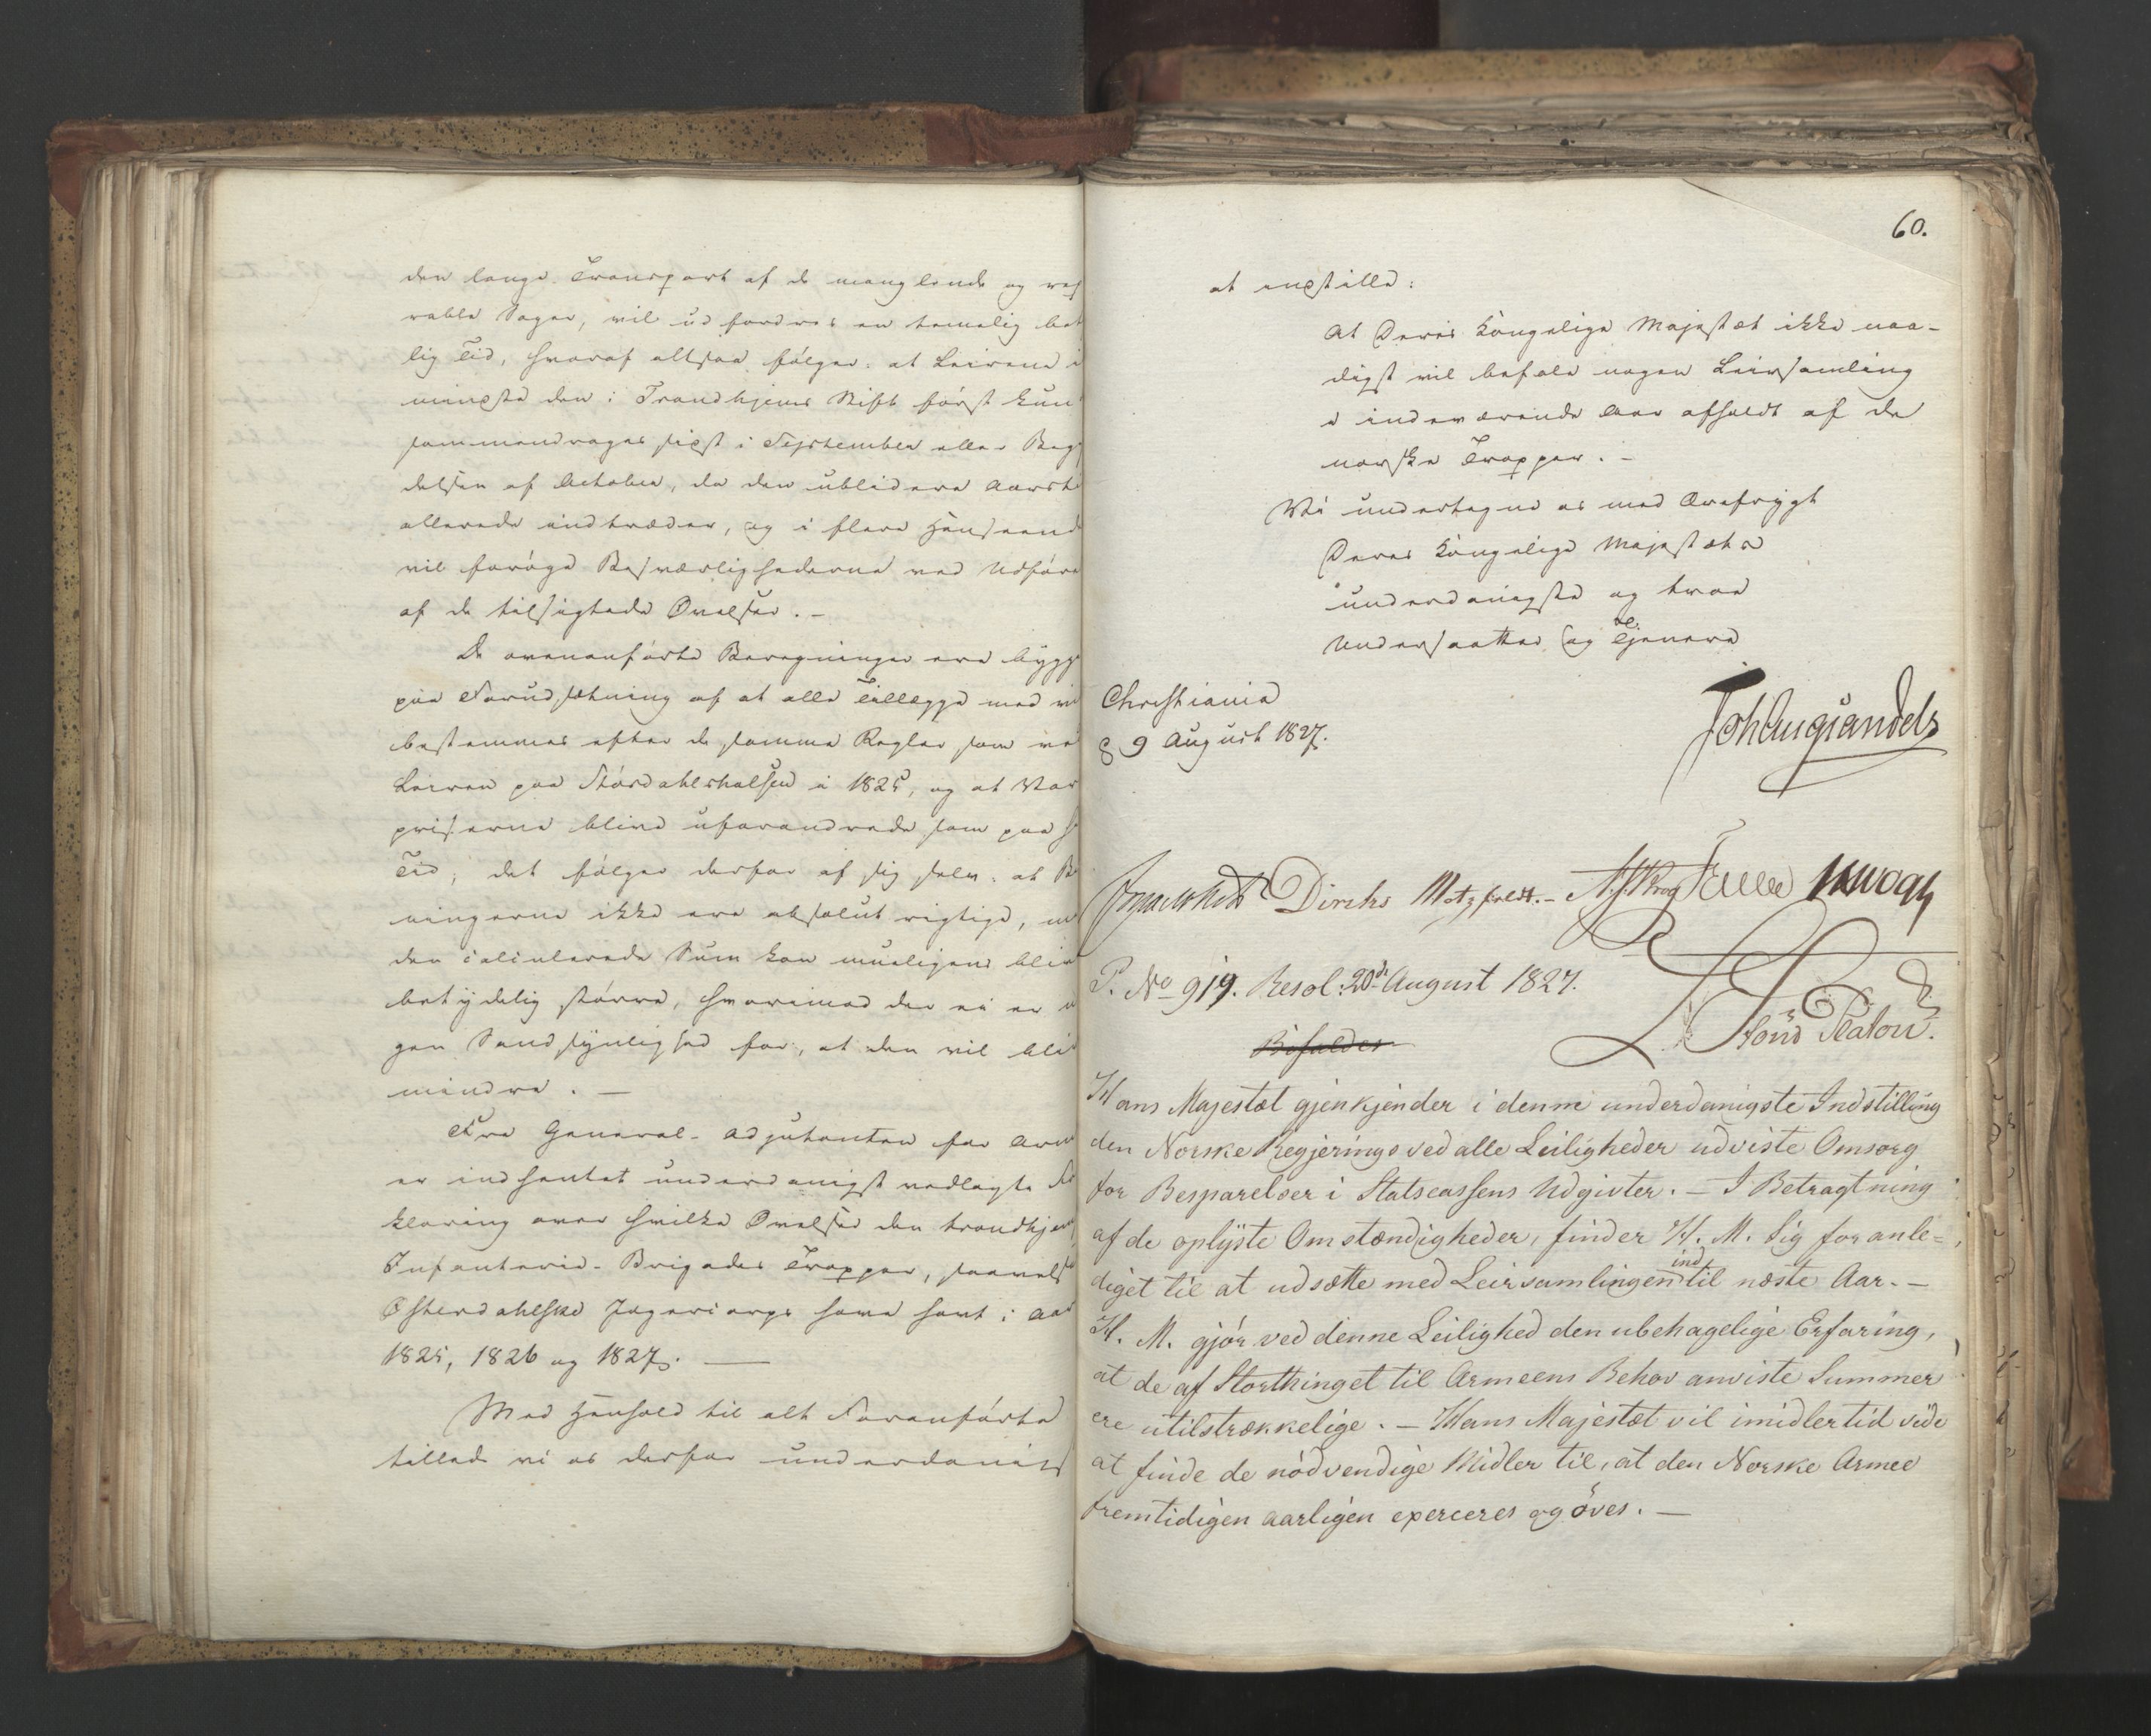 den lange Transport af de manglende og re
rable Sager, vil udfordres en temelig bet
lig Tid, hvoraf altsaa følger: at Leirene i
mindste den i Trondhjems Stift først kun
sammendrages sidst i September eller Beg
delsen af October, da den ublidere Aarsti
allerede indtræder, og i flere Henseend
vil forøge Besværlighederne ved Udføre
af de tilsigtede Øvelser. -
De ovenanførte Beregninger ere bygg
paa Forudsætning af at alle Tillægge med vi
bestemmes efter de samme Regler som ved
Leiren paa Stördahlshalsen i 1825, og at Var
priserne blive uforandrede som paa
Tid; det følger derfor af sig selv: at Be
ningerne ikke ere absolut rigtige, m
den calculerede Sum kan mueligens bliv
betÿdelig større, hvorimod der ei er n
gen Sandsÿnlighed for, at den vil bliv
mindre. —
Fra General-Adjutanten for Arm
er indhentet underdanigst vedlagte Fo
klaring over hvilke Øvelser den trondhjem
Infanterie-Brigades Tropper, saavels
Østerdahlske Jægercorps have havt i Aar
1825, 1826 og 1827. —
Med Henhold til alt Foranførte
tillade vi os derfor underdanigs
60.
at indstille:
At Deres Kongelige Majestæt ikke naa-
digst vil befale nogen Leirsamling
i indeværende Aar afholdt af de
norske Tropper. -
Vi undertegne os med Ærefrÿgt
Deres Kongelige Majestæts
underdanigste og troe
Undersaatter og Tjenere
Christiania
d 9 August 1827.
Joh Aug Sandels
Diriks Motzfeldt. - Krog
P. No 919. Resol: 20de August 1827.
Bifaldes
Hans Majestæt gjenkjender i denne underdanigste Indstilling
den Norske Regjerings ved alle Leiligheder udviste Omsorg
for Besparelser i Statscassens Udgivter. - I Betragtning
af de oplÿste Omstændigheder, finder H. M. Sig foranle-
diget til at udsætte med Leirsamlingen indtil næste Aar. -
H. M. gjör ved denne Leilighed den ubehagelige Erfaring,
at de af Storthinget til Armeens Behov anviste Summer
ere utilstrækkelige. - Hans Majestæt vil imidlertid vide
at finde de nödvendige Midler til, at den Norske Armee
fremtidigen aarligen exerceres og öves. -